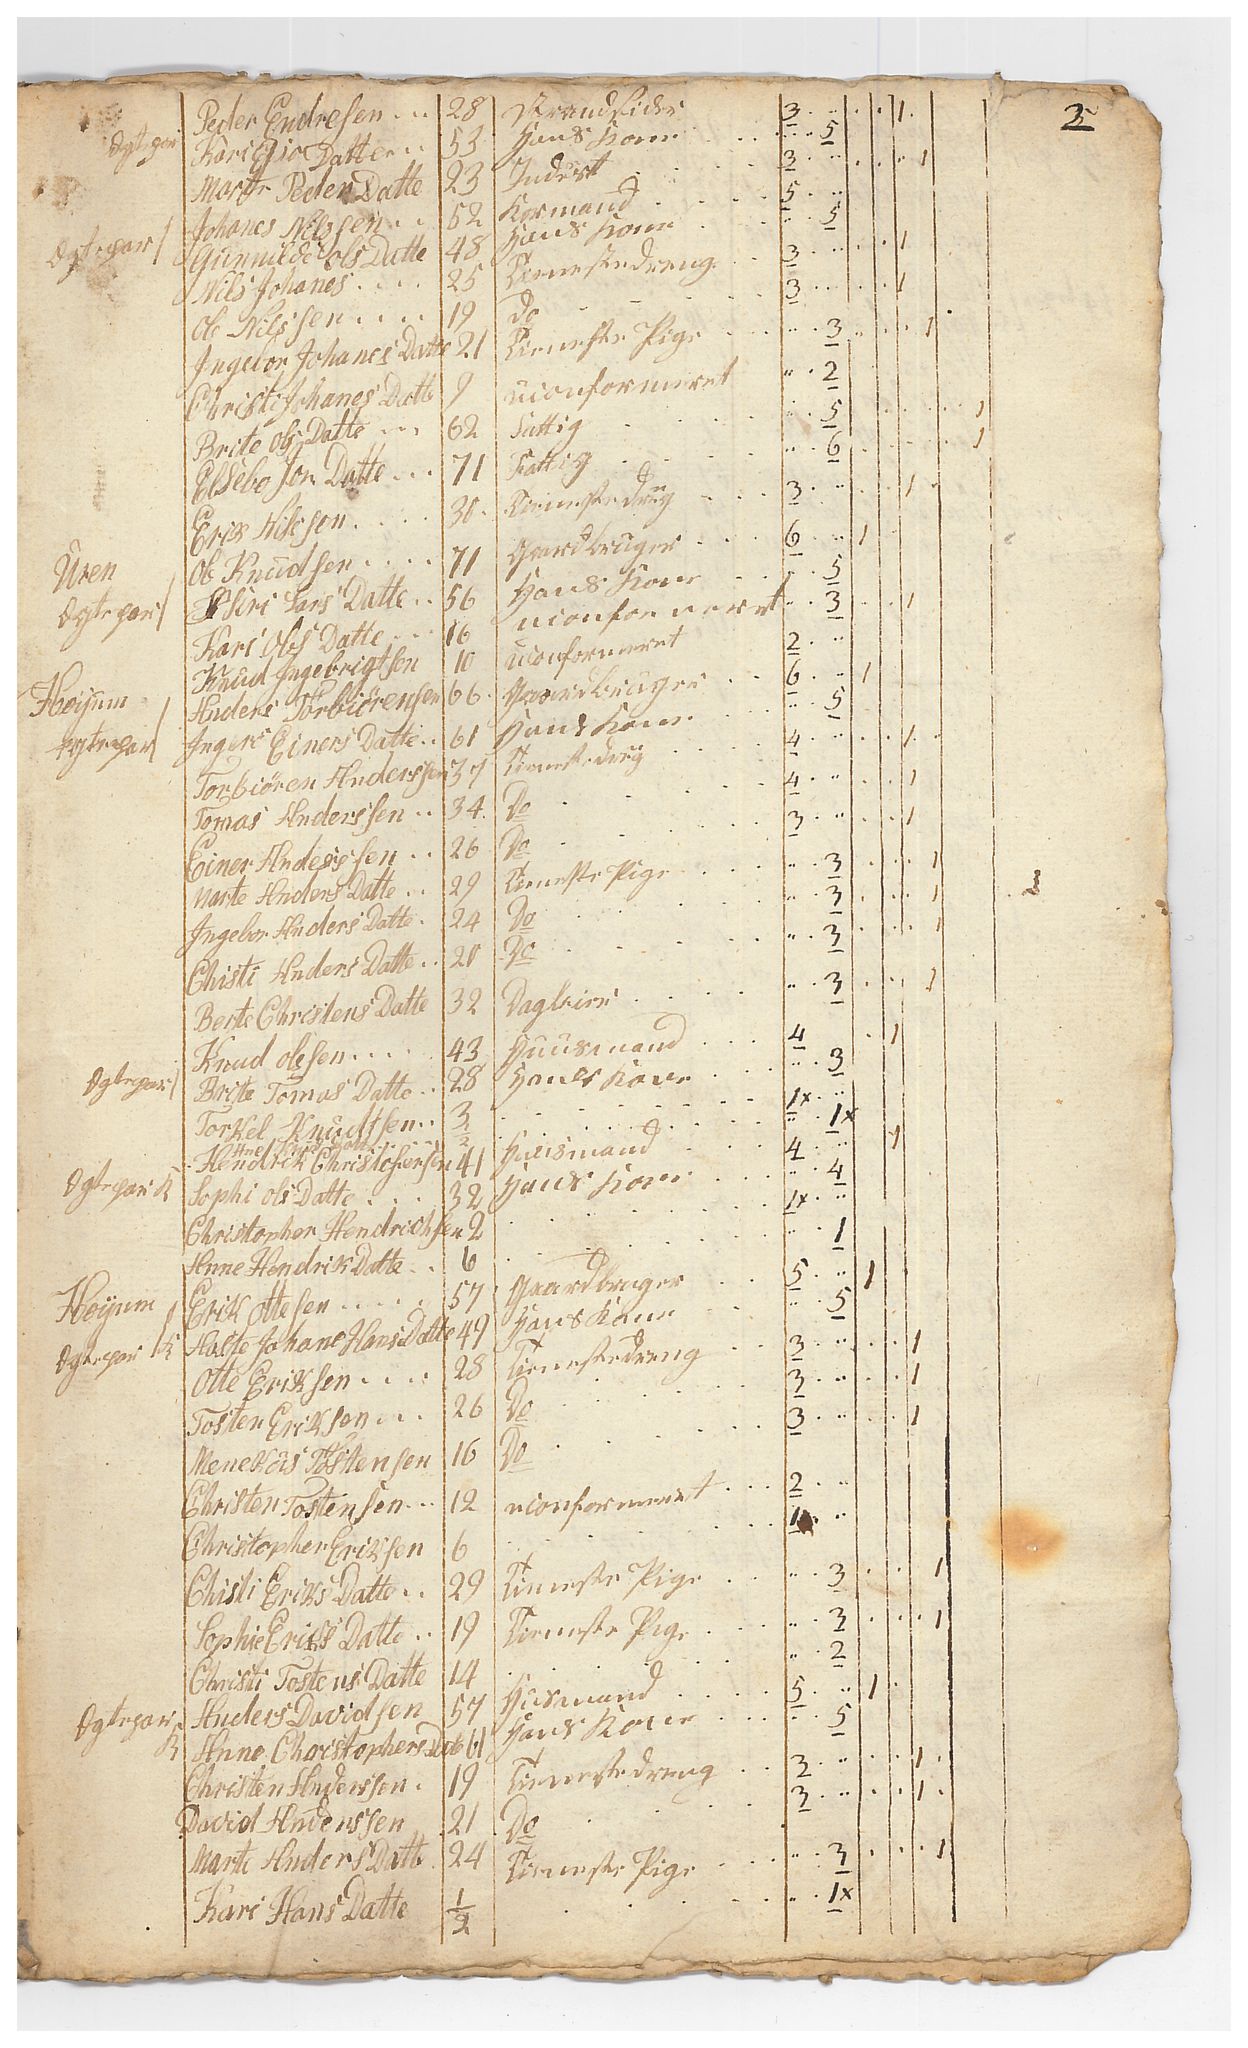 2
Peder Endresen 28 Strandsider 3 " 1
Ogtepar Kari Datter 53 Hans Kone " 5
Marte Peders Datte 23 Inderst 3 " 1
Johanes Nilssen 52 5 "
Ogtepar Gunnilde Ols Datte 48 Hans Kone " 5
Nils Johanes 25 Tienestedreng 3 " 1
Ole Nilssen 19 Do 3 " 1
Ingebor Johanes Datte 21 Tieneste Pige " 3 1
Christi Johanes Datte 9 uconformeret " 2
Brite Ols Datte 62 Fattig " 5 1
Elsebe Jon Datte 71 Fattig " 6 1
Erik Nilssen 30 Tienestedreng 3 " 1
Uren Ole Knudsen 71 Gaardbruger 6 " 1
Ogtepar Siri Lars Datte 56 Hans Kone " 5
Kari Ols Datte 16 uconformeret " 3 1
Knud Ingebrigtsen 10 uconformeret 2 "
Høijum Anders Torbiörensen 66 Gaardbruger 6 " 1
Ogtepar Ingeri Einers Datte 61 Hans Kone " 5
Torbiören Anderssen 37 Tienestedreng 4 " 1
Tomas Anderssen 34 Do 4 " 1
Einer Anderssen 26 Do 3 " 1
Marte Anders Datte 29 Tieneste Pige " 3 1
Ingebor Anders Datte 24 Do " 3 1
Christi Anders Datte 20 Do " 3 1
Berte Christens Datte 32 " 3 1
Knud Olesen 43 Huusmand 4 1
Ogtepar Brite Tomas Datte 28 Hans Kone " 3
Torkel Knudtsen 3 1x "
Ane " 1x
Hendrik Christofersen 41 Huusmand 4 " 1
Ogtepar Sophi Ols Datte 32 Hans Kone " 4
Christopher Hendrichsen 2 1x "
Anne Hendrik Datte 6 " 1
Høijum Erik Ottesen 57 Gaardbruger 5 " 1
Ogtepar Johans Datte 49 Hans Kone " 5
Otte Eriksen 28 Tienestedreng 3 " 1
Tosten Eriksen 26 Do 3 " 1
Tostensen 16 Do 3 " 1
Christen Tostensen 12 uconformeret 2 "
Christopher Eriksen 6 1 "
Christi Eriks Datte 29 Tieneste Pige " 3 1
Sophie Eriks Datte 19 Tieneste Pige " 3 1
Christi Tostens Datte 14 " 2
Anders Davidsen 57 Husmand 5 " 1
Ogtepar Anne Christophers Datte 61 Hans Kone " 5
Christen Anderssen 19 Tienestedreng 3 " 1
David Anderssen 21 Do 3 " 1
Marte Anders Datte 24 Tieneste Pige " 3 1
Kari Hans Datte 1/2 " 1x